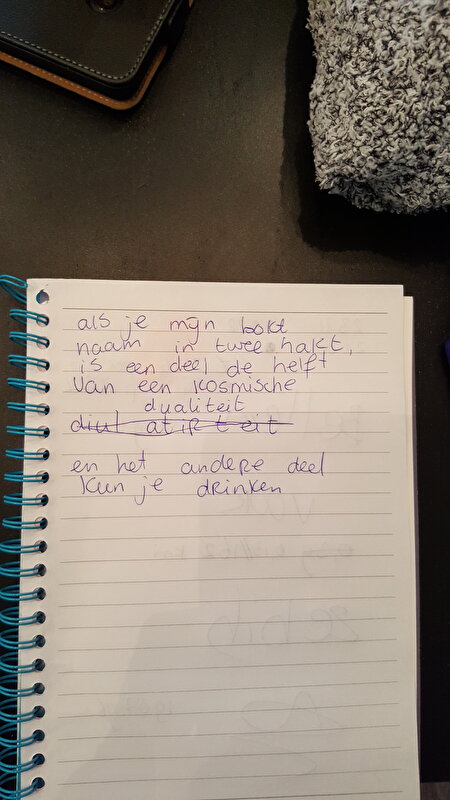 als je mijn bokt
naam in twee hakt,
is een deel de helft
van een kosmische
dualiteit
en het andere deel
kun je drinken